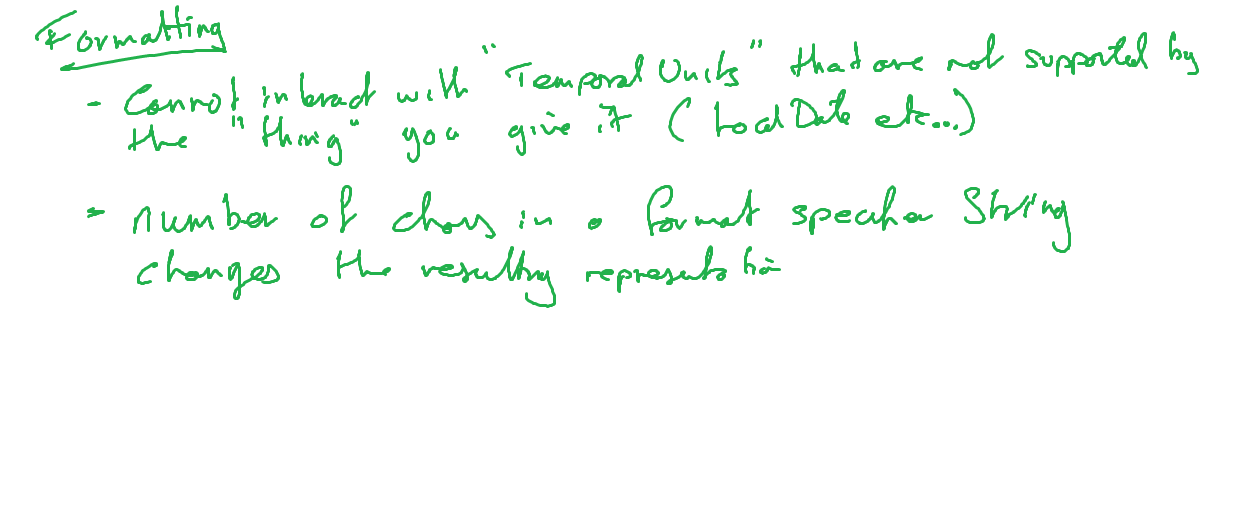 Formatting
- Cannot interact with "Temporal Units" that are not supported by
the "thing" you give it (Local Date etc...)
- number of chars in a format specifier String
changes the resulting representation